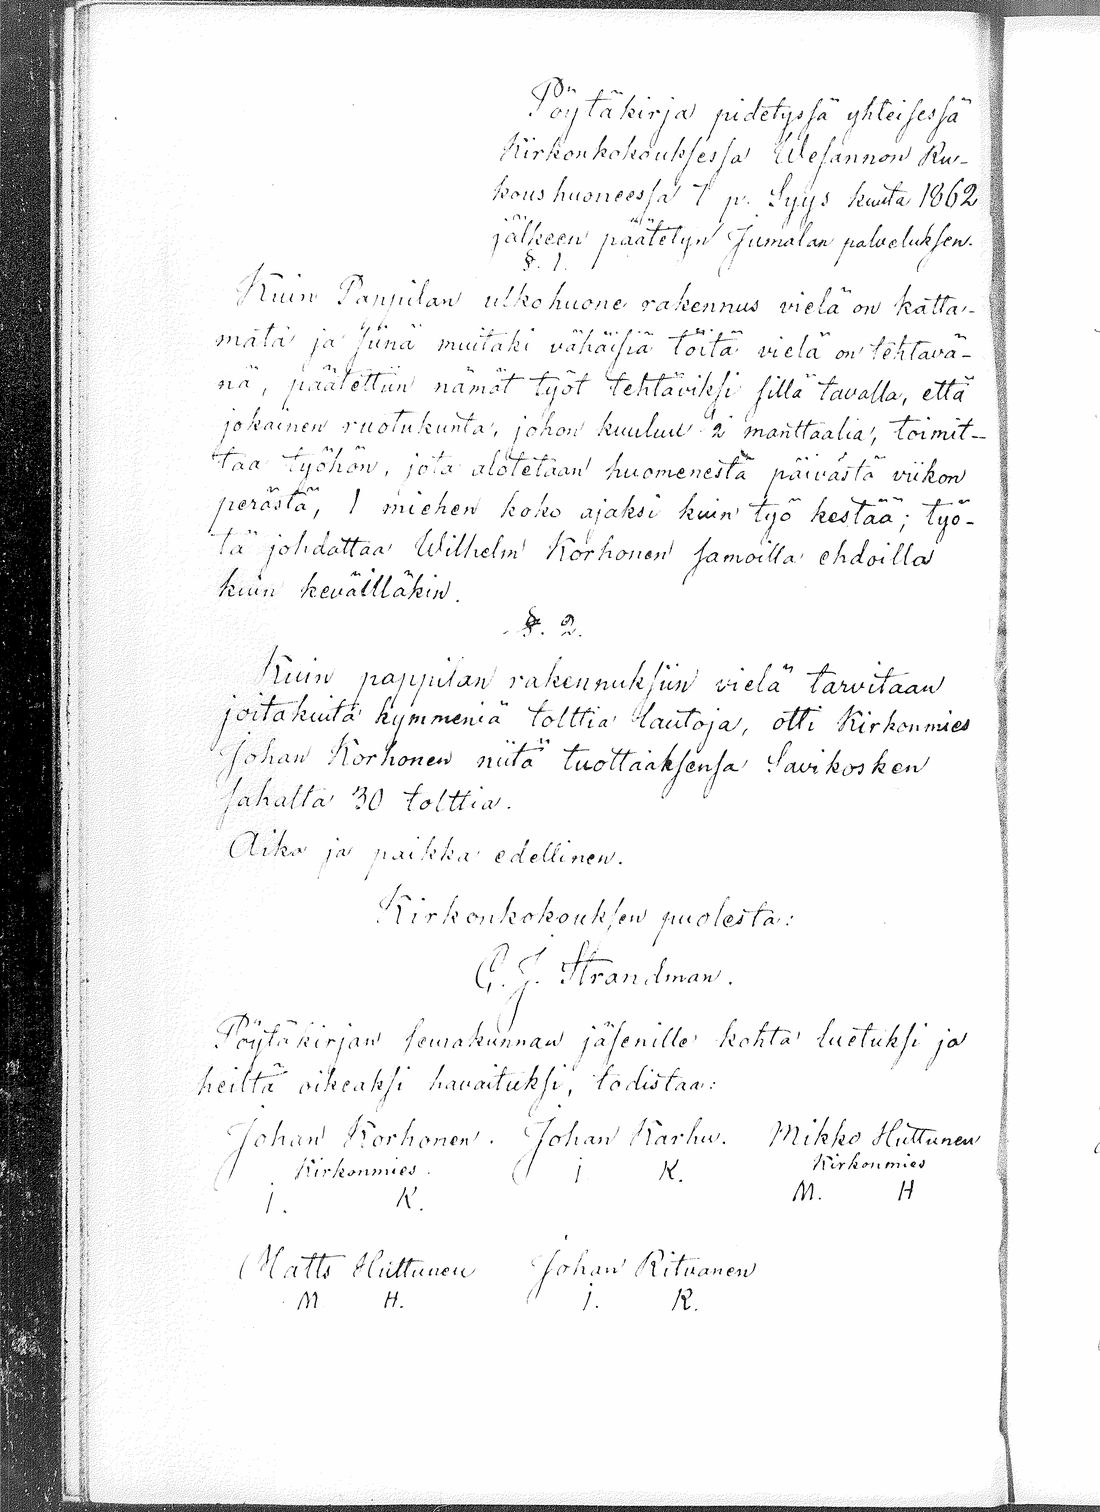 Pöytäkirja pidetyssä yhteisessä
Kirkonkokouksessa Wesannon Ru-
koushuoneessa 7 p. Syys kuuta 1862
jälkeen päätetyn Jumalan palveluksen.
§. 1.
Kuin Pappilan ulkohuone rakennus vielä on katta-
mata ja siinä muitaki vähäisiä töitä vielä on tehtävä-
nä, päätettiin nämät työt tehtäviksi sillä tavalla, että
jokainen ruotukunta, johon kuuluu 2 manttaalia, toimit-
taa työhön, jota alotetaan huomenestä päivästä viikon
perästä, 1 miehen koko ajaksi kuin työ kestää; työ-
tä johdattaa Wilhelm Korhonen samoilla ehdoilla
kuin keväilläkin.
§. 2.
Kuin pappilan rakennuksiin vielä tarvitaan
joitakuita kymmeniä tolttia lautoja, otti Kirkonmies
Johan Korhonen niitä tuottaaksensa Savikosken
sahalta 30 tolttia.
Aika ja paikka edellinen.
Kirkonkokouksen puolesta:
C. J. Strandman.
Pöytäkirjan seurakunnan jäsenille kohta luetuksi ja
heiltä oikeaksi havaituksi, todistaa:
Johan Korhonen. Johan Karhu. Mikko Huttunen
Kirkonmies. I K. Kirkonmies
I. K. M. H
Matts Huttunen Johan Rituanen
M H. I. R.